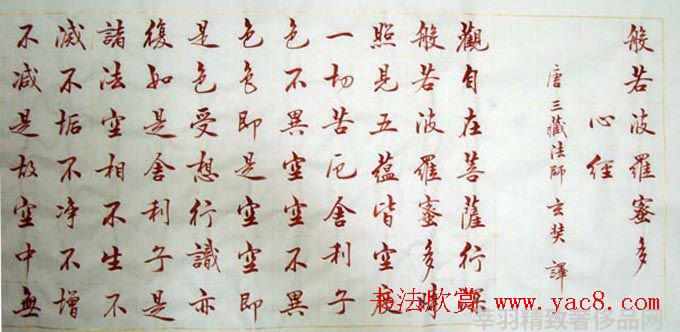 般若波羅蜜多
心經
唐三藏法師玄奘譯
觀自在菩薩行深
般若波羅蜜多時
照見五蘊皆空度
一切苦厄舍利子
色不異空空不異
色色即是空空即
是色受想行識亦
復如是舍利子是
諸法空相不生不
滅不垢不净不增
不减是故空中無
书法欣赏 www.yac8.com
精致奢侈品网